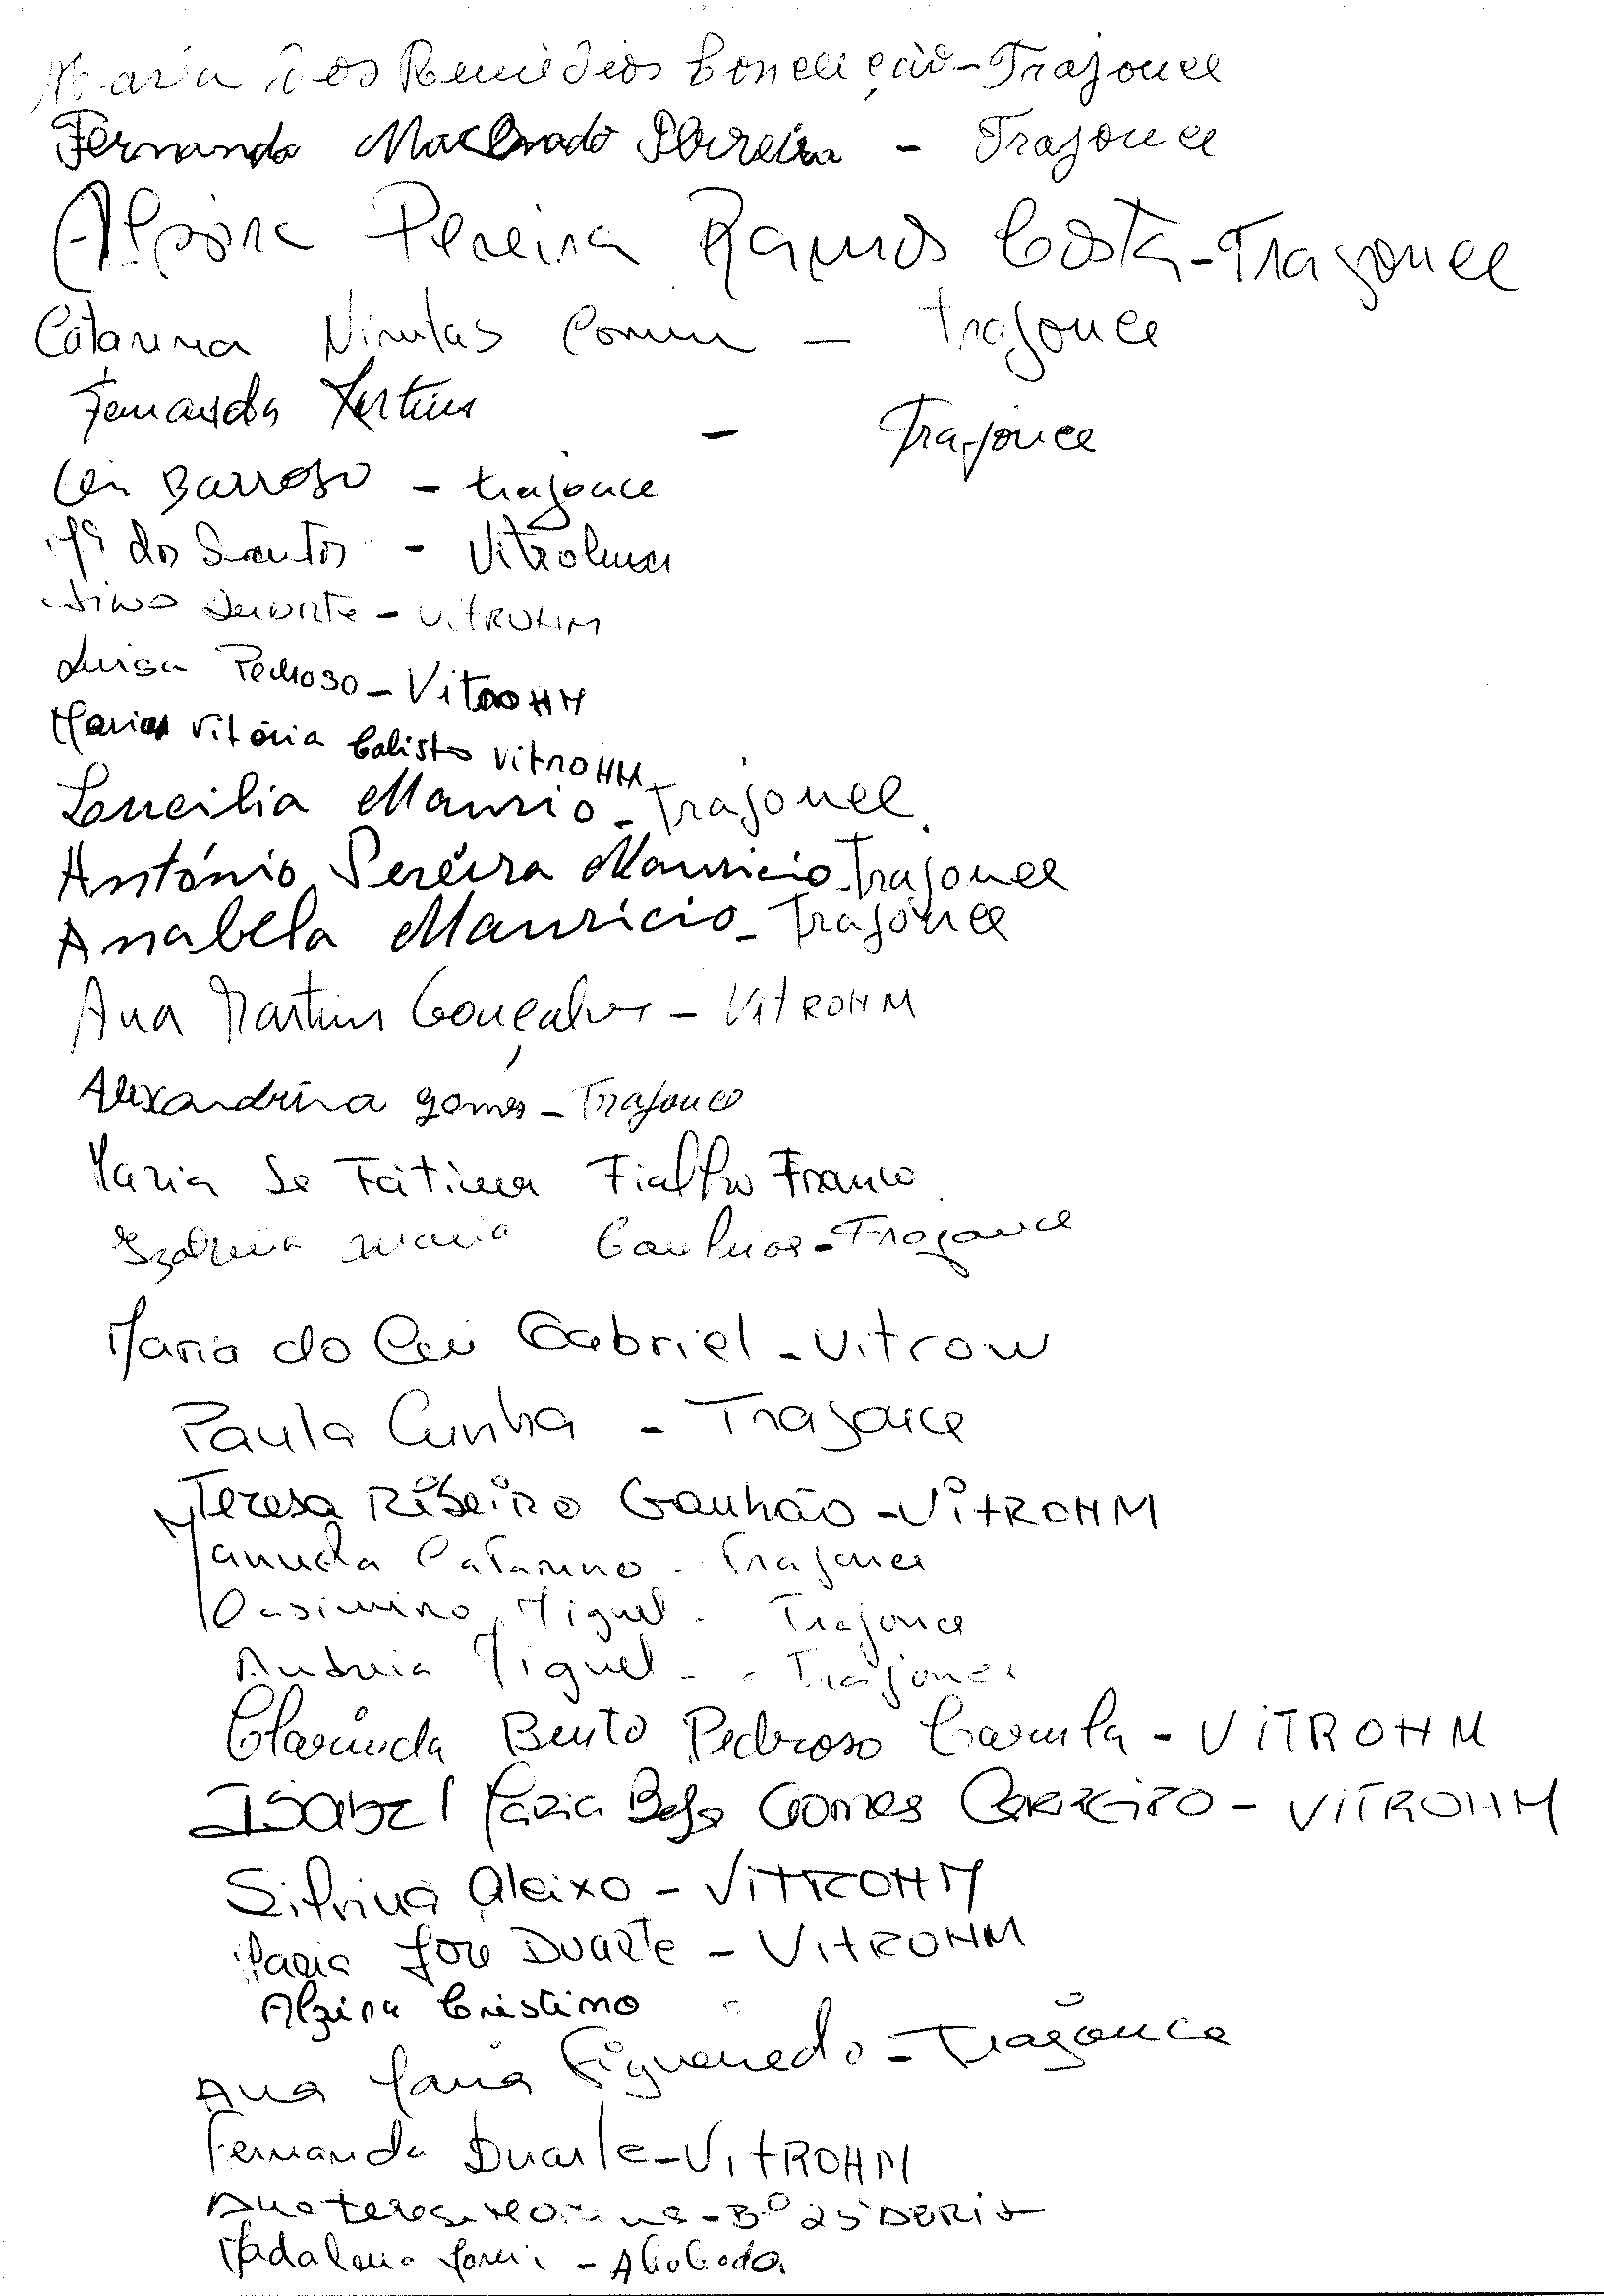 Maria dos Remédios Conceição - Trajouce
Fernanda Machado Pereira - Trajouce
Alzira Pereira Ramos Costa - Trajouce
Catarina - Trajouce
Fernanda Martins - Trajouce
Barroso - trajouce
Mª dos Santos - Vitrohm
Duarte - VITROHM
Luisa Pedroso - VitROHM
Maria Vitória Calisto VitROHM
Lucilia Maurio - Trajouce
António Pereira Mauricio - Trajouce
Anabela Mauricio - Trajouce
Ana Martins Gonçalves - VITROHM
Alexandrina Gomes - Trajouce
Maria de Fátima Fialho Franco
Maria - Trajouce
Maria do Céu Gabriel - Vitrow
Paula Cunha - Trajouce
Teresa Ribeiro Ganhão - VitROHM
Manuela Catarino - Trajouce
Casimiro Miguel - Trajouce
Andreia Miguel - Trajouce
Clarinda Bento Pedroso - VITROHM
Isabel Maria Gomes Carreiro - VITROHM
Silvina Aleixo - VITROHM
Maria José Duarte - VITROHM
Alzira Cristino
Ana Maria Figueiredo - Trajouce
Fernanda Duarte - VITROHM
Ana teresa - Bº 25 ABRIL
Madalena - Abóboda